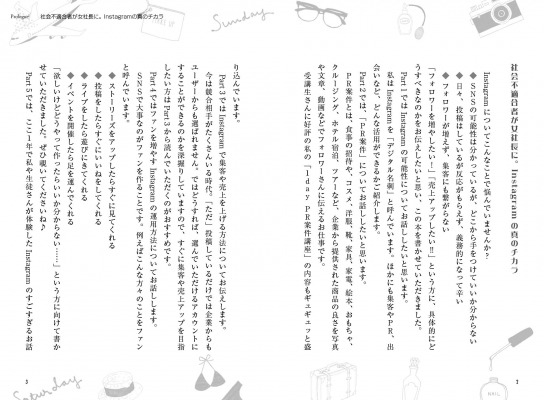 Prologue
社会不適合者が女社長に。Instagramの真のチカラ
Sunday
社会不適合者が女社長に。Instagramの真のチカラ
Instagramについてこんなことで悩んでいませんか?
◆SNSの可能性は分かっているが、どこから手をつけていいか分からない
◆日々、投稿はしているが反応がもらえず、義務的になって辛い
◆フォロワーが増えず、集客にも繋がらない
「フォロワーを増やしたい!」「売上アップしたい!!」という方に、具体的にど
うすべきなのかをお伝えしたいと思い、この本を書かせていただきました。
Part1ではInstagramの可能性についてお話ししたいと思います。
私はInstagramを「デジタル名刺」と呼んでいます。ほかにも集客やPR、出
会いなど、どんな活用ができるかご紹介します。
Part2では、「PR案件」についてお話ししたいと思います。
PR案件とは、食事の招待や、コスメ、洋服、靴、家具、家電、絵本、おもちゃ、
クルージング、ホテル宿泊、ツアーなど、企業から提供された商品の良さを写真
や文章、動画などでフォロワーさんに伝えるお仕事です。
受講生さんに好評の私の「1day PR案件講座」の内容もギュギュッと盛
2
り込んでいます。
Part3ではInstagramで集客や売上を上げる方法についてお伝えします。
今は競合相手がたくさんいる時代。「ただ」投稿しているだけでは企業からも
ユーザーからも選ばれません。ではどうすれば、選んでいただけるアカウントに
することができるのかを深掘りしていますので、すぐに集客や売上アップを目指
したい方はPart3から読んでいただくのがおすすめです。
Part4ではファンを増やすInstagramの運用方法についてお話しします。
SNSで大事なのがファンを作ることです。例えばこんな方々のことをファン
と呼んでいます。
◆ストーリーズをアップしたらすぐに見てくれる
◆投稿をしたらすぐにいいねをしてくれる
◆ライブをしたら遊びにきてくれる
◆イベントを開催したら足を運んでくれる
「欲しいけどどうやって作ったらいいか分からない……」という方に向けて書か
せていただきました。ぜひ覗いてくださいね♪
Part5では、ここ1年で私や生徒さんが体験したInstagramのすごすぎるお話
3
Saturday
NAIL